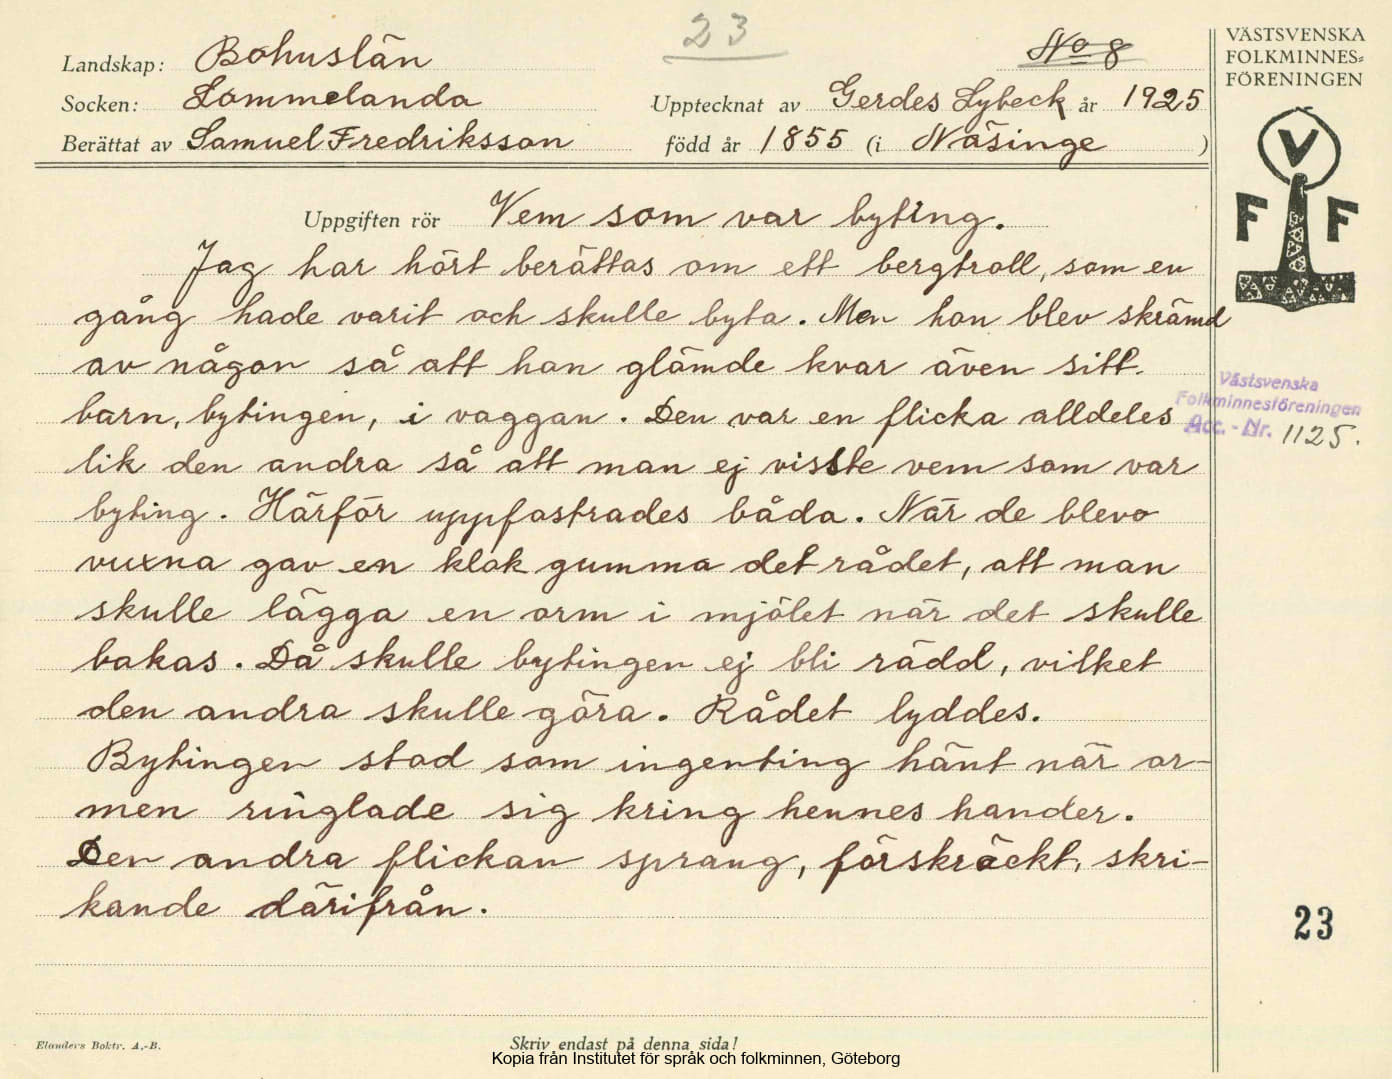 23
No 8
VÄSTSVENSKA
FOLKMINNES=
FÖRENINGEN
Landskap: Bohuslän
Socken: Sommelanda Upptecknat av Gerdes Lybeck år 1925
Berättat av Samuel Fredriksson född år 1855 (i Näsinge )
V
F F
Uppgiften rör Vem som var byting.
Jag har hört berättas om ett bergtroll, som en
gång hade varit och skulle byta. Men han blev skrämd
av någon så att han glömde kvar även sitt
barn, bytingen, i vaggan. Den var en flicka alldeles
lik den andra så att man ej visste vem som var
byting. Härför uppfostrades båda. När de blevo
vuxna gav en klok gumma det rådet, att man
skulle lägga en orm i mjölet när det skulle
bakas. Då skulle bytingen ej bli rädd, vilket
den andra skulle göra. Rådet lyddes.
Bytingen stod som ingenting hänt när or-
men ringlade sig kring hennes hander.
Den andra flickan sprang, förskräckt, skri-
kande därifrån.
Västsvenska
Folkminnesföreningen
Acc.-Nr. 1125.
23
Elanders Boktr. A.-B.
Skriv endast på denna sida!
Kopia från Institutet för språk och folkminnen, Göteborg